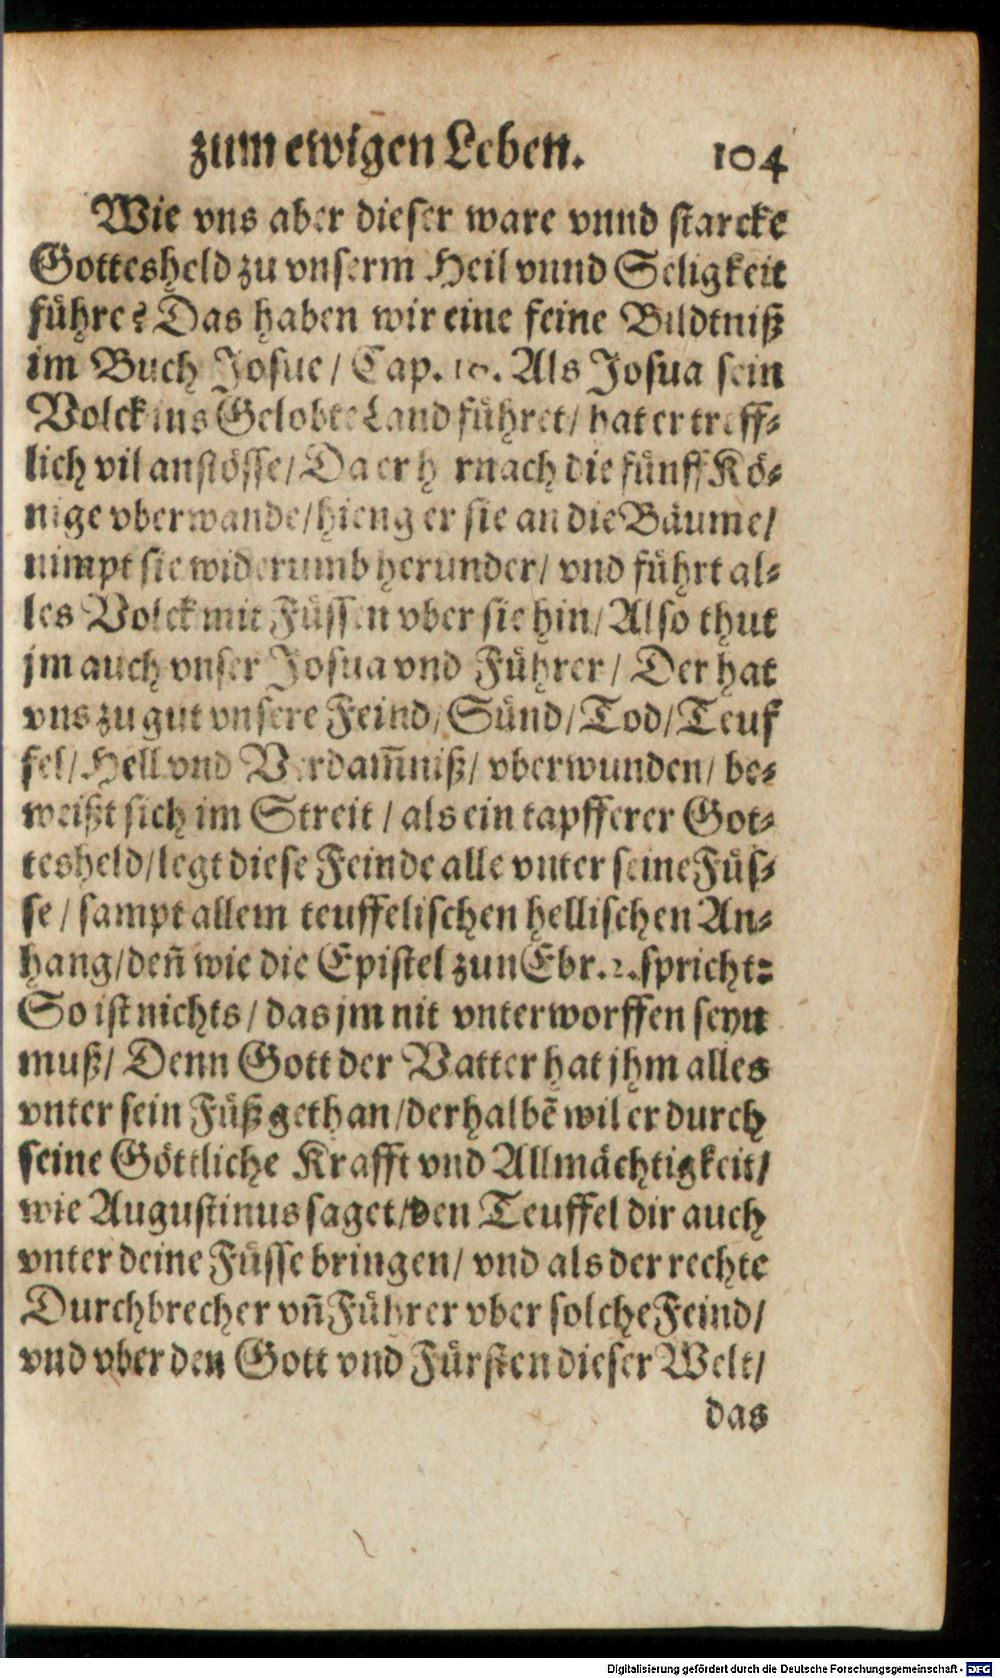 zum ewigen Leben. 104
Wie vns aber dieser ware vnnd starcke
Gottesheld zu vnserm Heil vnnd Seligkeit
führe? Das haben wir eine feine Bildtniß
im Buch Josue / Cap. 10. Als Josua sein
Volck ins Gelobte Land führet / hat er treff-
lich vil anstösse / Da er hernach die fünff Kö-
nige vberwande / hieng er sie an die Bäume /
nimpt sie widerumb herunder / vnd führt al-
les Volck mit Füssen vber sie hin / Also thut
jm auch vnser Josua vnd Führer / Der hat
vns zu gut vnsere Feind / Sünd / Tod / Teuf
fel / Hell vnd Verdam̄niß / vberwunden / be-
weißt sich im Streit / als ein tapfferer Got-
tesheld / legt diese Feinde alle vnter seine Füs-
se / sampt allem teuffelischen hellischen An-
hang / den̄ wie die Epistel zun Ebr. 2. spricht:
So ist nichts / das jm nit vnterworffen seyn
muß / Denn Gott der Vatter hat jhm alles
vnter sein Füß gethan / derhalbē wil er durch
seine Göttliche Krafft vnd Allmächtigkeit /
wie Augustinus saget / den Teuffel dir auch
vnter deine Füsse bringen / vnd als der rechte
Durchbrecher vn̄ Führer vber solche Feind /
vnd vber den Gott vnd Fürsten dieser Welt /
das
Digitalisierung gefördert durch die Deutsche Forschungsgemeinschaft - DFG